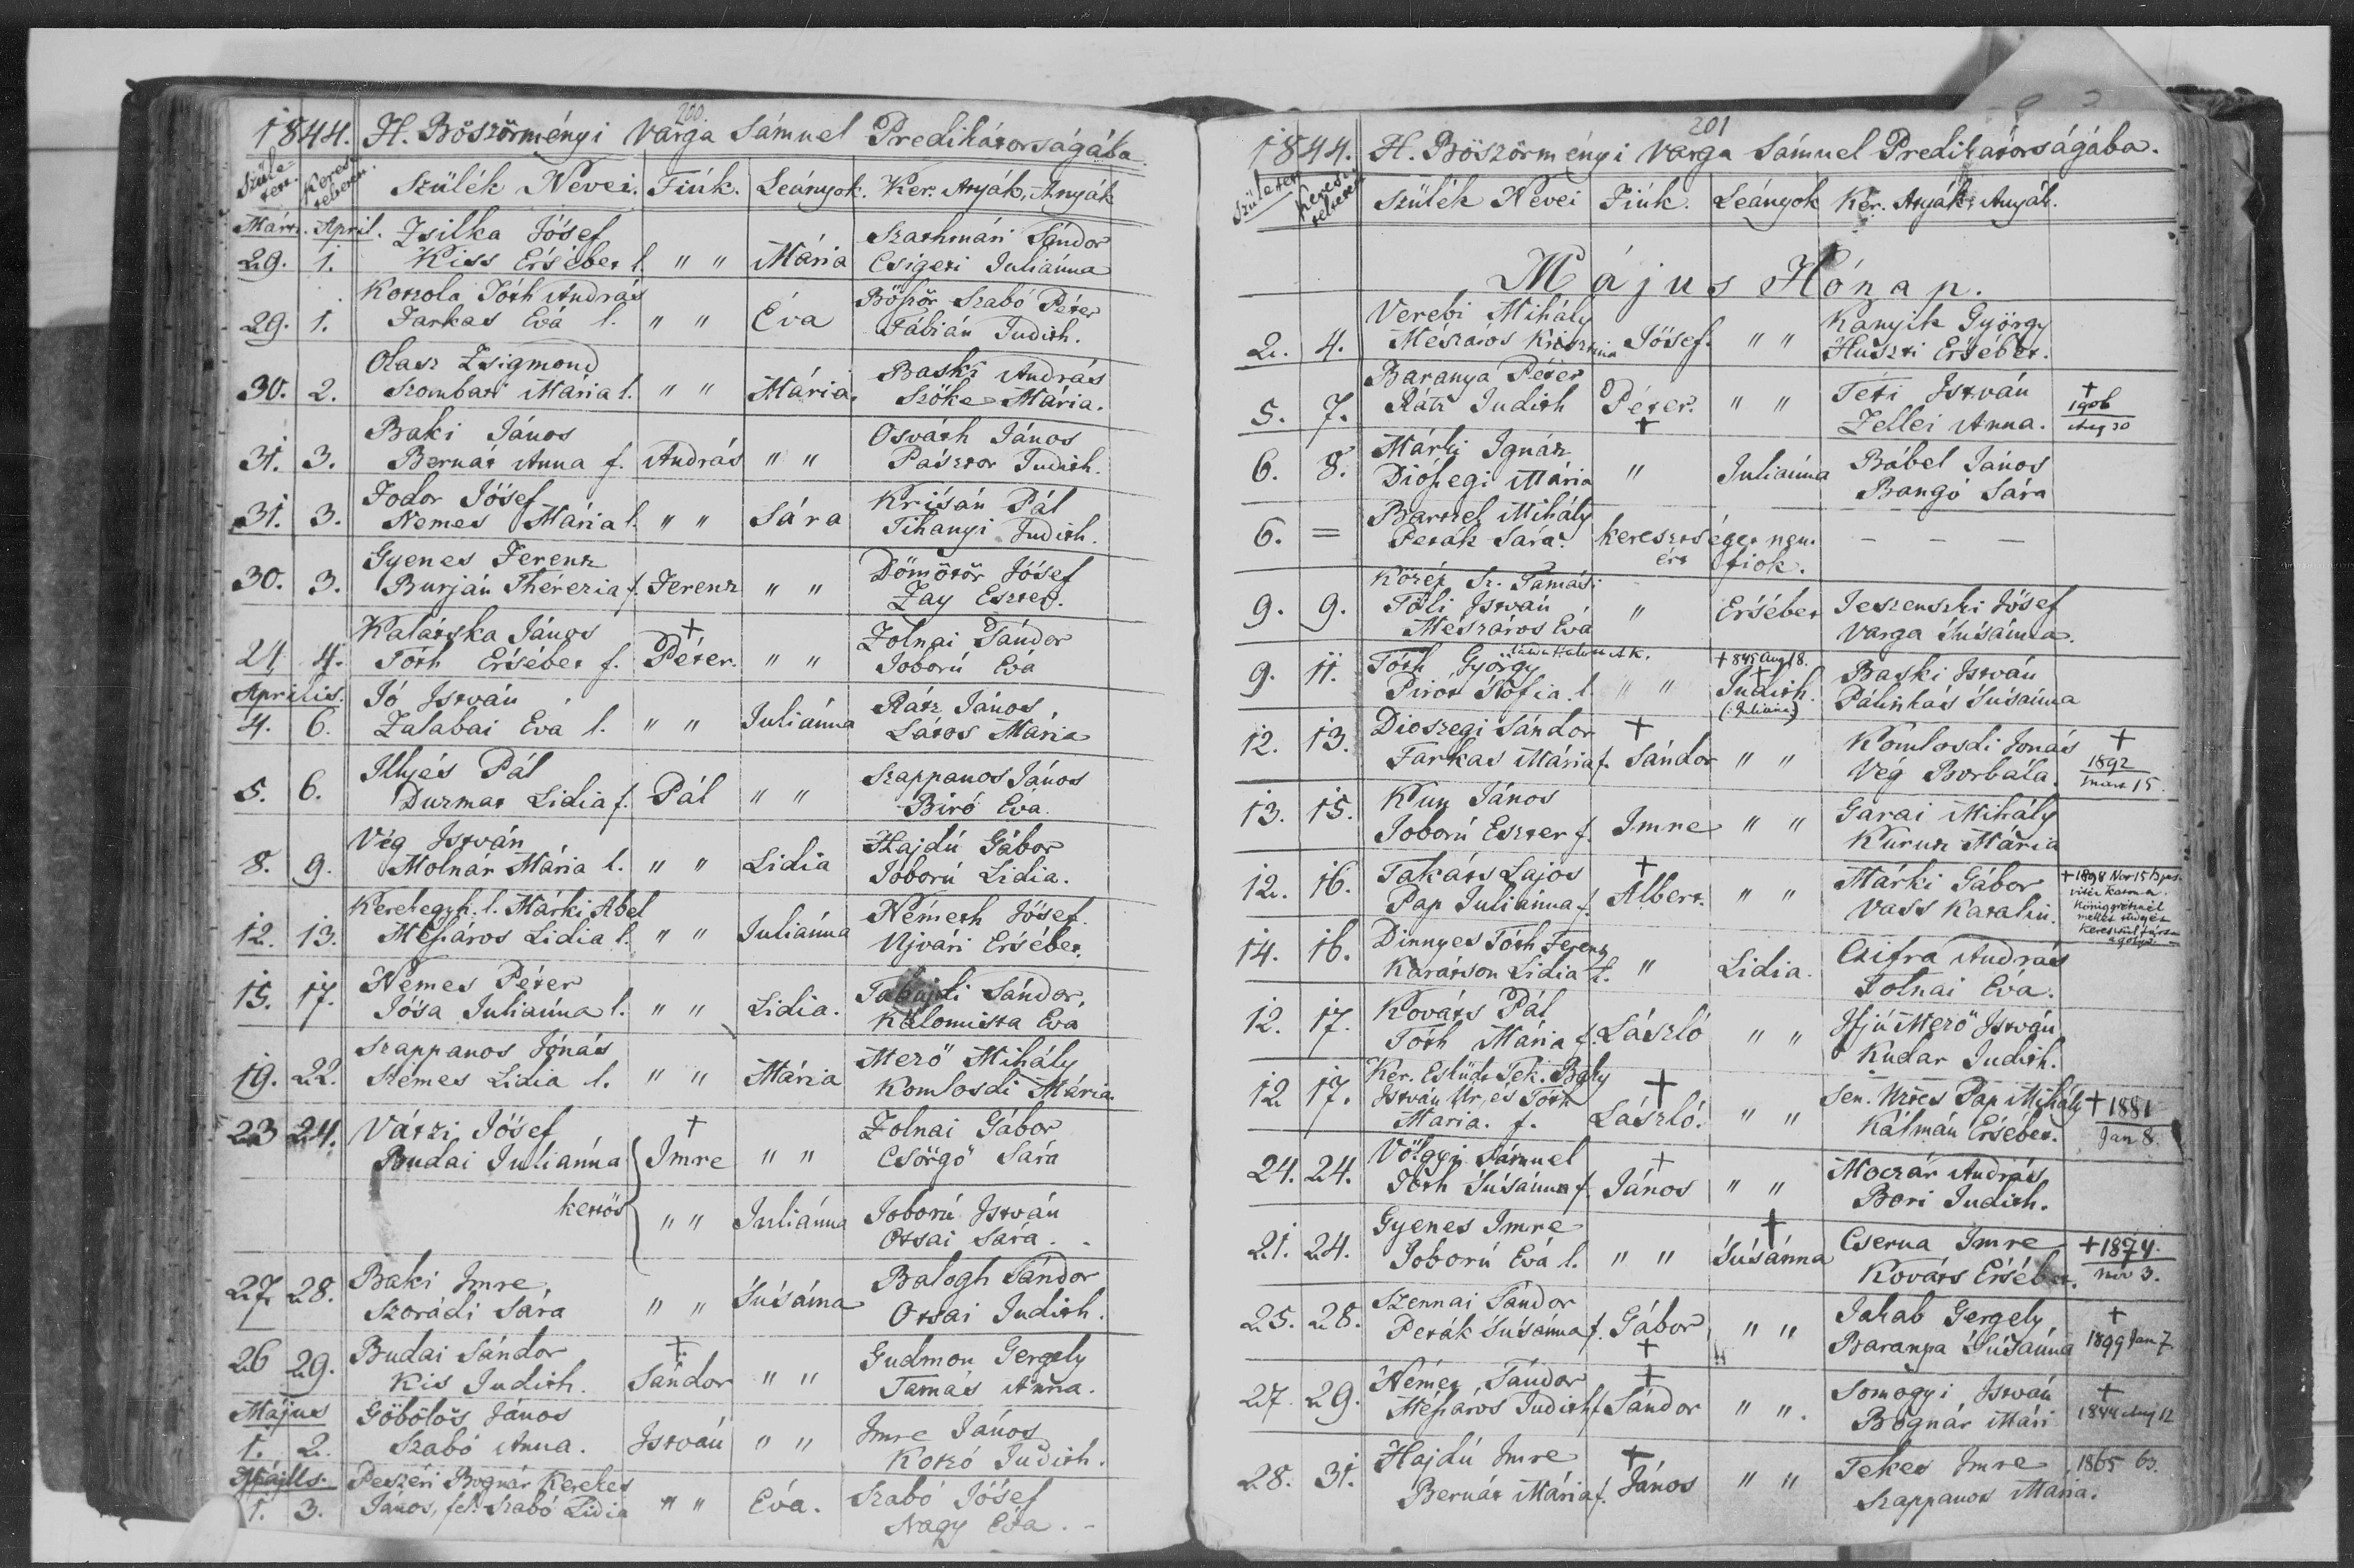 200.
1844. H. Böszörményi Varga Sámuel Predikátorságába.
Szüle=tett. Keresz=teltetett. Szülék Nevei. Fiúk. Leányok. Ker. Atyák, Anyák
Márt. April. Zsilka Jósef Szathmári Sándor
29. 1. Kiss Ersébet l. " " Mária Csigeri Juliánna
Koszola Tóth András Bőhör Szabó Péter
29. 1. Farkas Éva l. " " Éva Fábián Judith.
Olasz Zsigmond Baski András
30. 2. Szombati Mária l. " " Mária. Szőke Mária.
Baki János Osváth János
31. 3. Bernát Anna f. András " " Pásztor Judith.
Fodor Jósef Krisán Pál
31. 3. Nemes Mária l. " " Sára Tihanyi Judith.
Gyenes Ferentz Dömötör Jósef
30. 3. Burján Thérezia f. Ferentz " " Zay Eszter.
Katátska János + Zolnai Sándor
24 4. Tóth Ersébet f. Péter. " " Joború Éva
Aprilis. Jó István Rátz János,
4. 6. Zalabai Éva l. " " Juliánna Sátos Mária
Illyés Pál Szappanos János
5. 6. Durmat Lidia f. Pál " " Biró Éva
Vég István Hajdú Gábor
8. 9. Molnár Mária l. " " Lidia Joború Lidia.
Keretegyh. l. Márki Ábel Németh Jósef
12. 13. Mészáros Lidia l. " " Juliánna Ujvári Ersébet.
Nemes Péter Tabajdi Sándor,
15. 17. Jósa Juliánna l. " " Lidia. Kálomista Éva
Szappanos Jónás Mező Mihály
19. 22. Nemes Lidia l. " " Mária Komlosdi Mária
23 24. Vátzi Jósef + Zolnai Gábor
Budai Juliánna Imre " " Csörgő Sára
kettős " " Juliánna Joború István
Ottsai Sára.
Baki Imre Balogh Sándor
27. 28. Szorádi Sára " " Súsánna Otsai Judith.
Budai Sándor + Gudmon Gergely
26 29. Kis Judith. Sándor " " Tamás Anna.
Május Göbölös János Imre János
1. 2. Szabó Anna. István " " Kotzó Judith.
Május. Peszéri Bognár Kerekes Szabó Jósef
1. 3. János, fel. Szabó Lidia " " Éva. Nagy Éva.
201
1844. H. Böszörményi Varga Sámuel Predikátorságába.
Születtet Keresz=teltetett Szülék Nevei Fiúk. Leányok Ker. Atyák, Anyák.
Május Hónap.
Verebi Mihály Kanyik György
2. 4. Mészáros Krisztina Jósef. " " Huszti Ersébet.
Baranya Péter Téti István + 1906
5. 7. Rátz Judith Péter. + " " Zellei Anna. Aug 30
Márki Ignátz Bábel János
6. 8. Diószegi Mária " Juliánna Bangó Sára
Bartzel Mihály
6. = Peták Sára. keresztséget nem ért fiok. — — —
Közép Sz. Tamási
9. 9. Tóli István " Ersébet Jeszenszki Jósef
Mészáros Éva Varga Súsánna.
Tóth György + 845 Aug 18. Baski István
9. 11. Pirót Sófia l. " " Judith. (: Juliána :) Pálinkás Súsánna
Dioszegi Sándor + Komlosdi Jonás +
12. 13. Farkas Mária f. Sándor " " Vég Borbála. 1892 mart 15.
Kun János Garai Mihály
13. 15. Joború Eszter f. Imre " " Kurutz Mária
Takáts Lajos + Márki Gábor + 1898 Nov 15
12. 16. Pap Juliánna f. Albert. " " Vass Katalin. Königgrätznél
Dinnyes Tóth Ferentz Czifra András
14. 16. Karátson Lidia l. " Lidia. Tolnai Éva.
Kováts Pál Ifjú Mező István
12. 17. Tóth Mária f. László " " Kudar Judith.
Ker. Esküdt Tek. Baky + Sen. Nztes Pap Mihály + 1881
12 17. István Úr, és Tóth László. " " Kálmán Ersébet. Jan 8.
Mária. f.
Völgyi Sámuel + Moczár András
24. 24. Tóth Súsánna f. János " " Bori Judith.
Gyenes Imre + Cserna Imre + 1874.
21. 24. Joború Éva l. " " Súsánna Kováts Ersébet. nov 3.
Szennai Sándor Jakab Gergely +
25. 28. Peták Súsánna f. Gábor + " " Baranya Súsánna 1899 Jan 7
Német Sándor + Somogyi István +
27. 29. Mészáros Judith f. Sándor " " Bognár Mári 1844 Aug 12
Hajdú Imre + Tekes Imre 1865 63.
28. 31. Bernát Mária f. János " " Szappanos Mária.